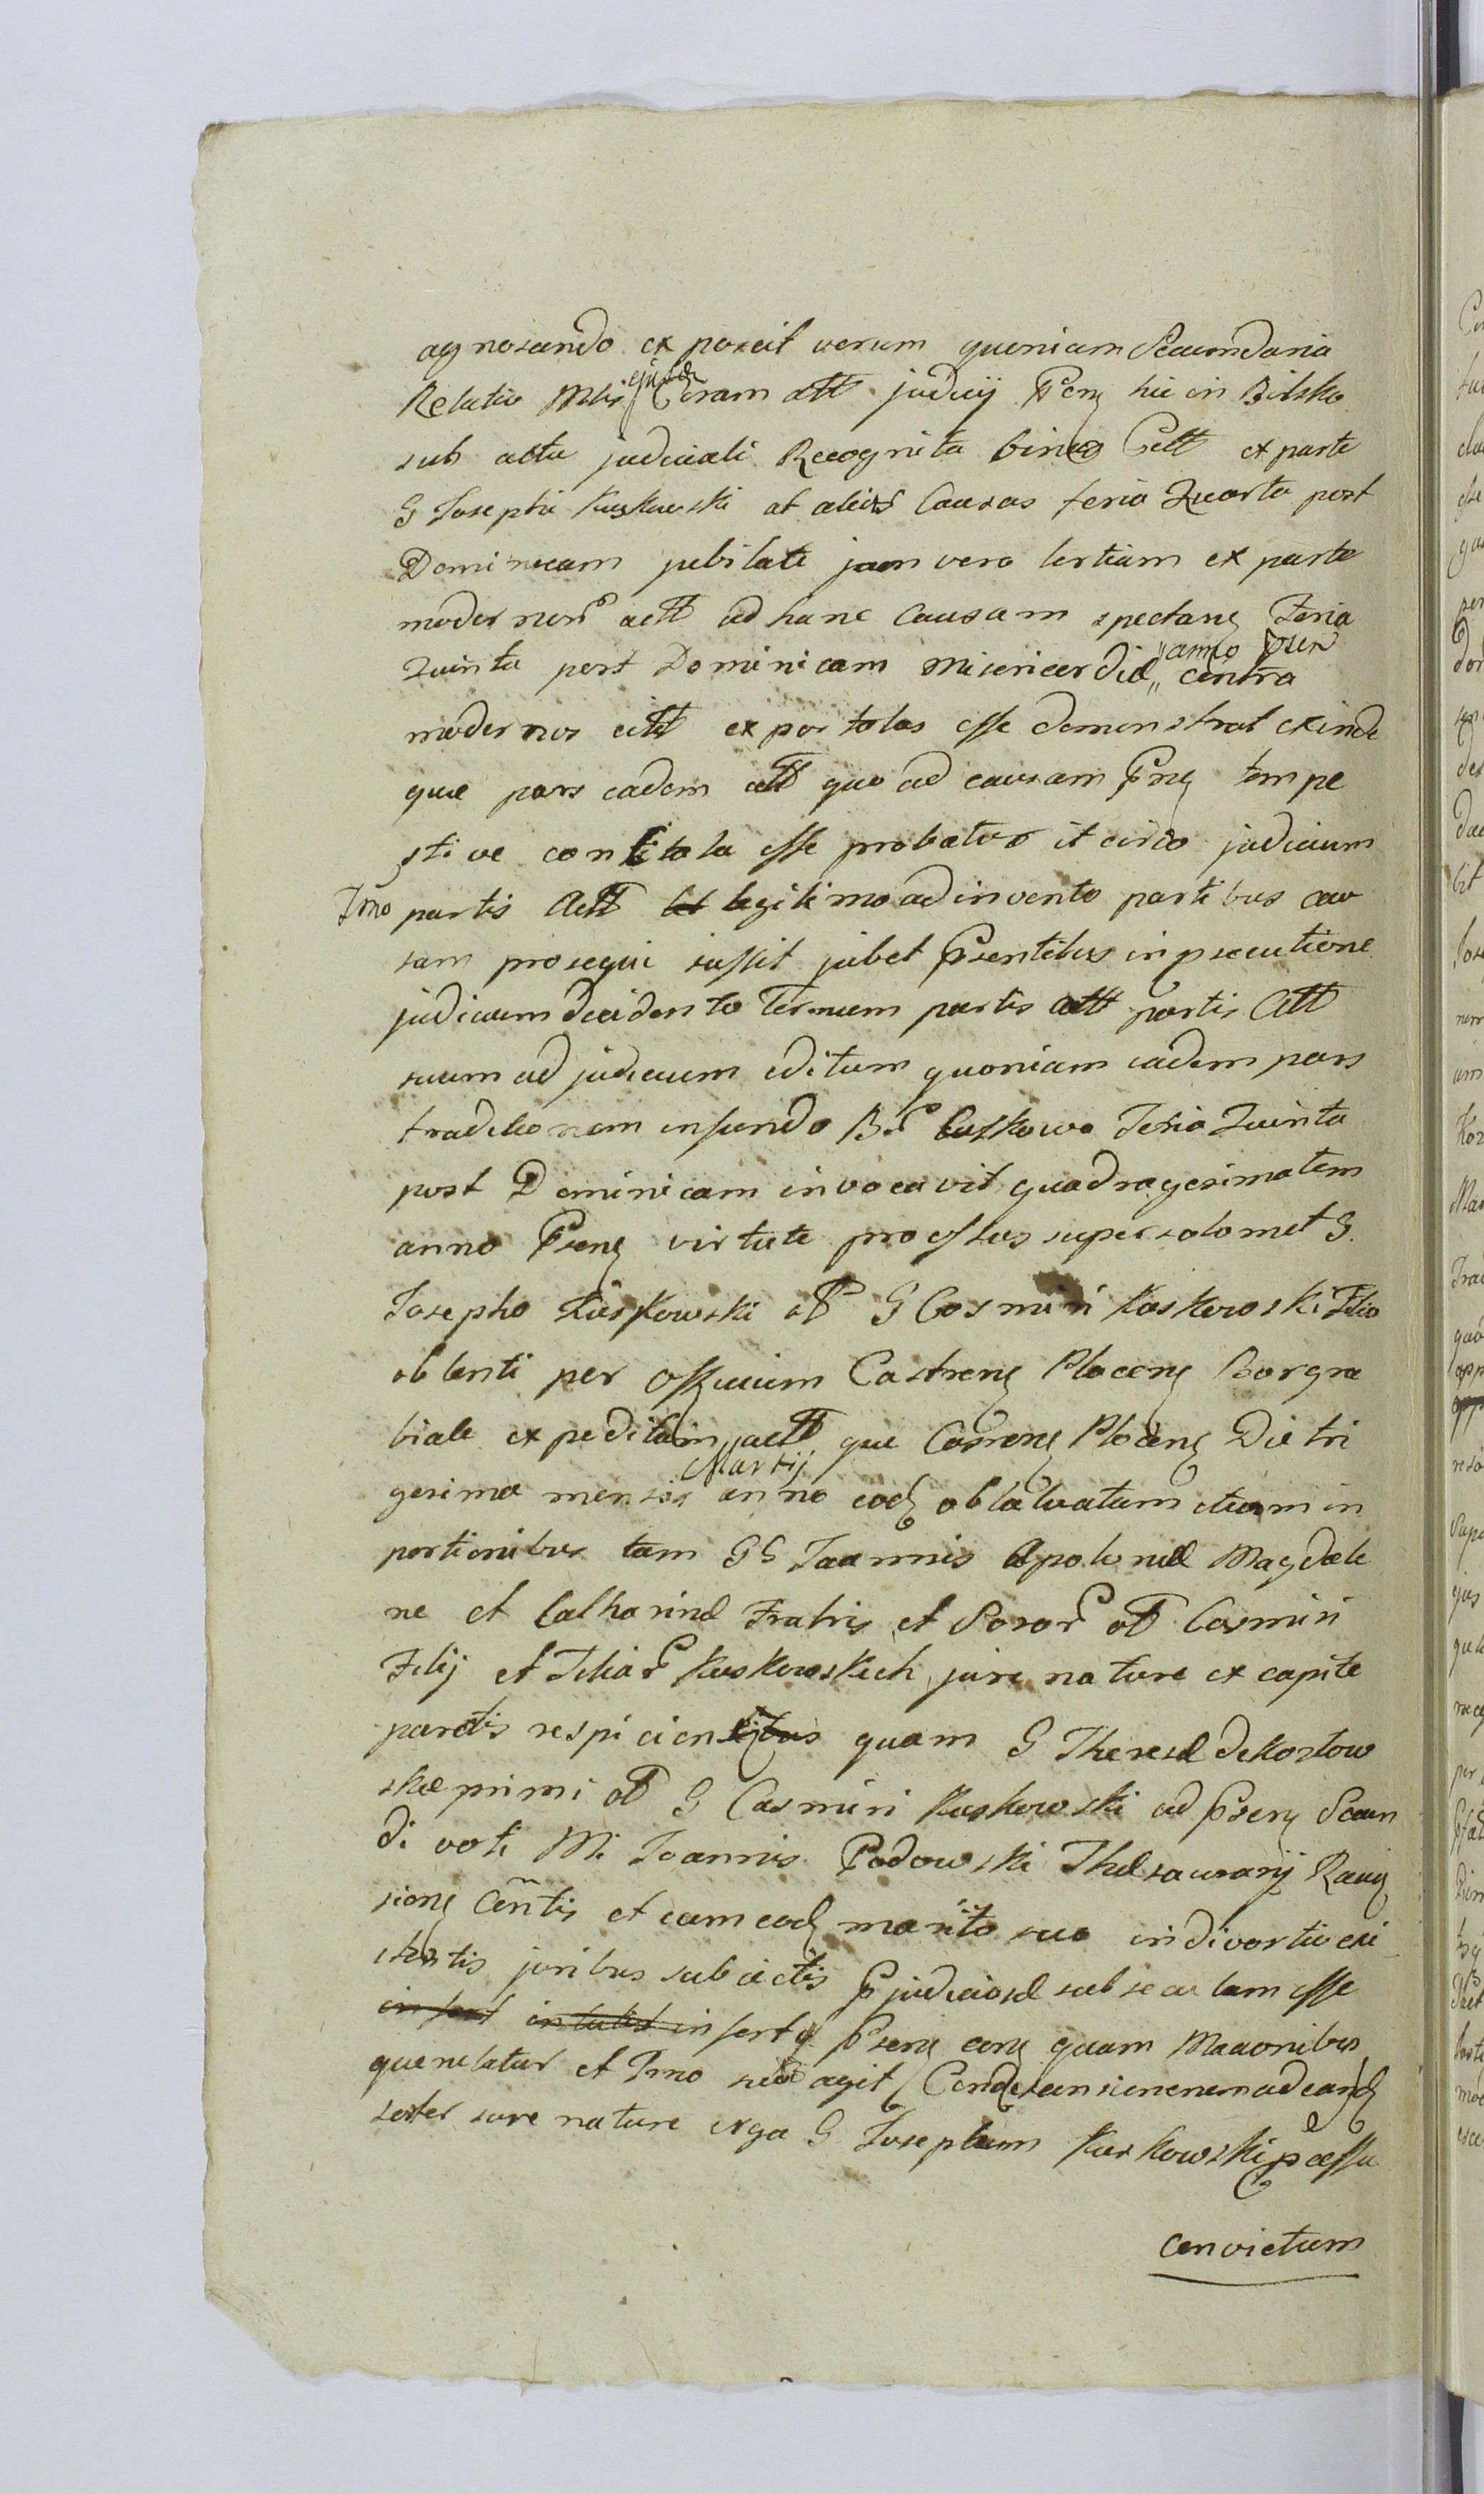 agnoscendo exposcit verum quoniam Secundaria
Relatio Mlis ejusd Coram att judicij Psens hic in Bilsko
sub actu judiciali Recognita binas Citt ex parte
G Josephi Kuskowski at alias Causas feria Quarta post
Dominicam jubilate jam vero tertiam ex parte
modernor actt ad hanc Causam spectans Feria
Quinta post Dominicam Misericordiæ „anno psen„ contra
modernos citt exportatas esse demonstrat exinde
que pars eadem att quo ad causam Psns tempe
stive contitata esse probatur it circo judicium
Imo partis Actt legitimo adinvento partibus cau
sam prosequi jussit jubet Psentibus in psecutione
judicium decidendo Termum partis actt partis Att
suum ad judicium editum quoniam eadem pars
traditionem in fundo Br Cuskowo Feria Quinta
post Dominicam invocavit quadragesimatem
anno Psens virtute processus super solomet G.
Josepho Kuskowski ol G Casmiri Kuskowski Filio
obtenti per Officium Castrens Plocens Borgra
biale expeditam actt que Casrens Plocens Die tri
gesima mensis Martij anno eod oblatvatam etiam in
portionibus tam GG Joannis Apoloniæ Magdale
ne et Catharinæ Fratris et Soror ol Casmiri
Filij et Filiar Kuskowskich jure nature ex capite
paretis respicien quam G Theresæ de Kostow
skæ primi ol G Casmiri Kuskowski ad Psens Secun
di voti Mi Joannis Padowski Thesaurarij Raviz
siens Centis et cum eod marito suo in divortio exi
stentis juribus subiectis pjudiciosæ subsecutam esse
insert Psens cons quam Maaonibus
querulatur et Imo sub agit Condescensionenem ad eand
sortes jure nature erga G Josephum Kuskowski passu
convictum